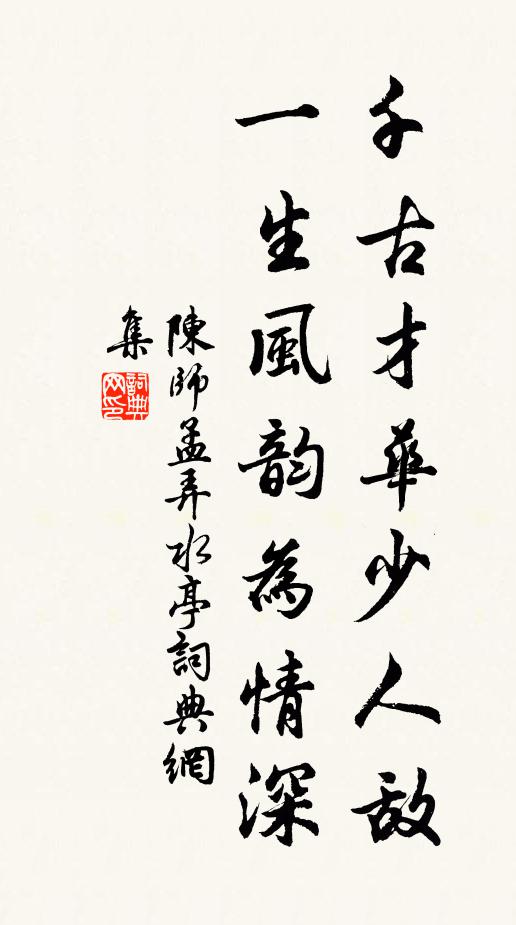 千古才華少人敵
一生風韵為情深
陳師孟弄水亭詞典網
集
詞典
网印